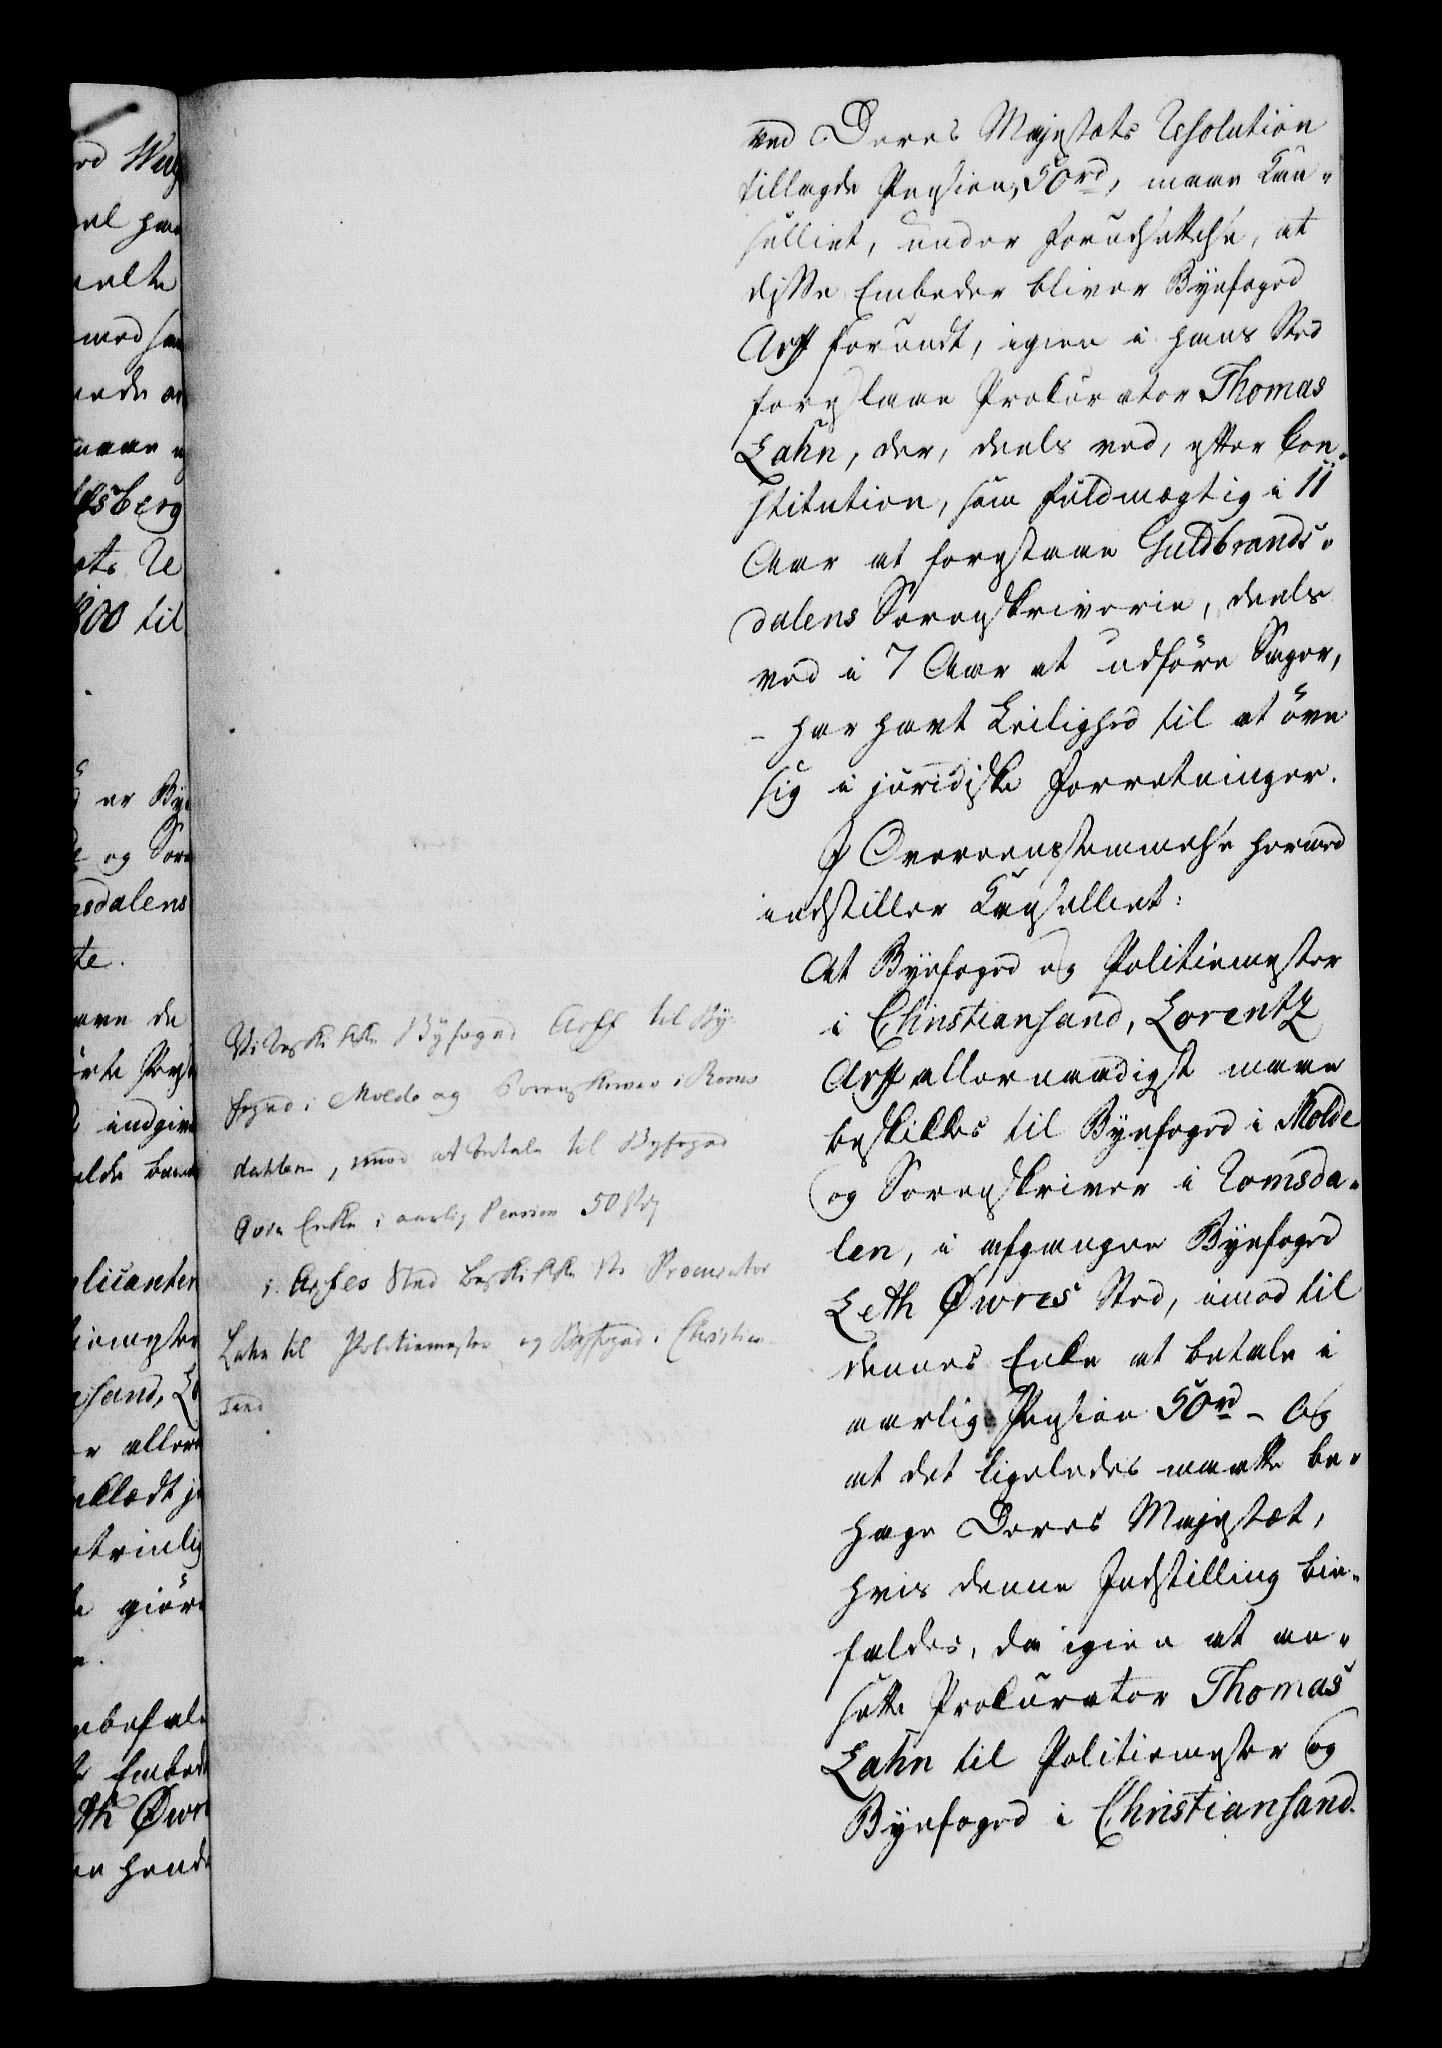 ved Deres Majestæts Resolution
tillagde Pension, 50 rd, maae Can-
celliet, under Forudsættelse, at
disse Embeder bliver Byefoged
Arff forundt, igien i hans Sted
foreslaae Prokurator Thomas
Lahn, der, deels ved, efter Con-
stitution, som Fuldmægtig i 11
Aar at forestaae Guldbrands-
dalens Sorenskriverie, deels
ved i 7 Aar at udføre Sager,
– har havt Leilighed til at øve
sig i juridiske Forretninger.
I Overeensstemmelse herved
indstiller Cancelliet:
At Byefoged og Politiemester
i Christiansand, Lorentz
Arff allernaadigst maae
beskikkes til Byefoged i Molde
og Sorenskriver i Romsda-
len, i afgangne Byefoged
Leth Øwres Sted, imod til
dennes Enke at betale i
aarlig Pension 50 rd – Og
at det ligeledes maatte be-
hage Deres Majestæt,
hvis denne Indstilling bie-
faldes, da igien at an-
sætte Prokurator Thomas
Lahn til Politiemester og
Byefoged i Christiansand.
Vi beskikke Byfoged Arff til By-
foged i Molde og Sorenskriver i Roms
dahlen, mod at betale til Byfoged
Øvre Enke i aarlig Pension 50 Rd
i Arfes Sted beskikke Vi Procurator
Lahn til Politiemester og Byfoged i Christian
sand